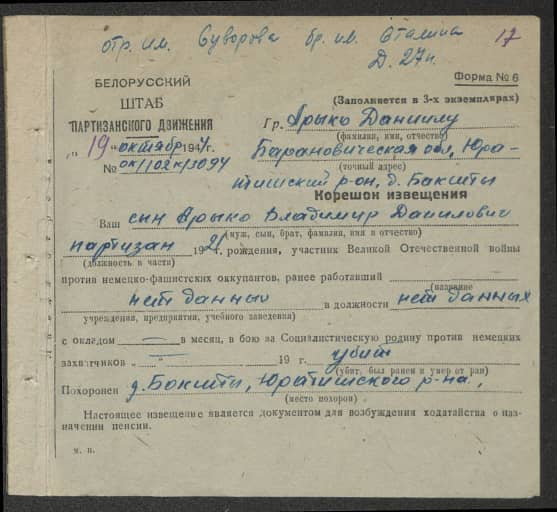 отр. им. Суворова бр. им. Сталина 17
Д. 27н.
Форма № 6
БЕЛОРУССКИЙ
ШТАБ
ПАРТИЗАНСКОГО ДВИЖЕНИЯ
„19“ октября 1944 г.
№ ок/102к/3094
(Заполняется в 3-х экземплярах)
Гр. Ярыко Даниилу
(фамилия, имя, отчество)
Барановичская обл, Юра-
(точный адрес)
тишский р-он, д. Бакшты
Корешок извещения
Ваш сын Ярыко Владимир Данилович
(муж, сын, брат, фамилия, имя и отчество)
партизан 1921 г. рождения, участник Великой Отечественной войны
(должность в части)
против немецко-фашистских оккупантов, ранее работавший
(название
нет данных в должности нет данных
учреждения, предприятия, учебного заведения)
с окладом — в месяц, в бою за Социалистическую родину против немецких
захватчиков „ — 19 г. убит
(убит, был ранен и умер от ран)
Похоронен д. Бокшты, Юратишского р-на,
(место похорон)
Настоящее извещение является документом для возбуждения ходатайства о наз-
начении пенсии.
м. п.